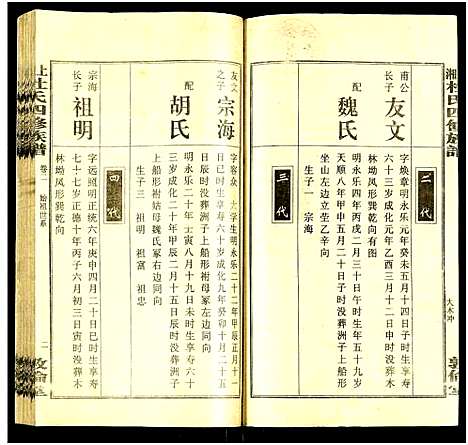 湘
杜氏四修族谱
大木冲
敦伦堂
二代
甫公
长子
友文
字焕章明永乐元年癸未五月十四日子时生享寿
六十三岁成化元年乙酉三月十
林坳凤形巽乾向有图
配
魏氏
明永乐四年丙戌二月三十日午
天顺八年甲申五月二十日子时没葬洲子上船形
坐山左边立垄乙辛向
生子一 宗海
三代
友文
之子
宗海
字容众 大学生明永乐二十二年甲辰正月十一
六十岁成化九年癸
配
胡氏
明永乐二十年壬寅八月十九日辰时生享寿六十
三岁成化二十年甲辰二月十五日辰时没葬洲子
上船形祔母冢左边同向
上船形祔姑魏氏冢右边同向
生子三 祖明 祖富 祖忠
四代
宗海
长子
祖明
字远照明正统六年庚申四月二十日巳时生享寿
七十七岁正德十年丙子六月初三日寅时没葬木
林坳凤形巽乾向
上
杜氏四修族谱
卷二 始祖世系
二
敦伦堂